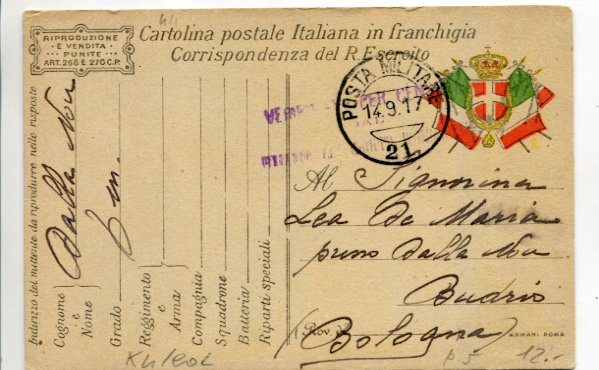 RIPRODUZIONE
E VENDITA
PUNITE
ART. 268 E 270 C.P.
Cartolina postale Italiana in franchigia
Corrispondenza del R. Esercito
POSTA MILITARE
14.9.17
21
VERI PER CEN
Indirizzo del mittente da riprodurre nelle risposte
Cognome e Nome
Dalla Nou
Grado
Reggimento e Arma
Compagnia
Squadrone
Batteria
Riparti speciali
Al Signorina
Lea De Maria
presso Dalla Nou
Budrio
(Prov. d
Bologna)
ARMANI ROMA
p5
12.-